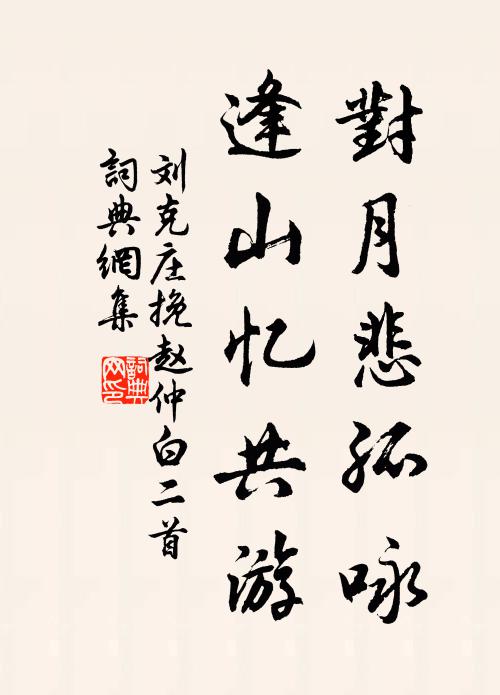 對月悲孤咏
逢山忆共游
刘克庄挽赵仲白二首
詞典網集
詞典网印